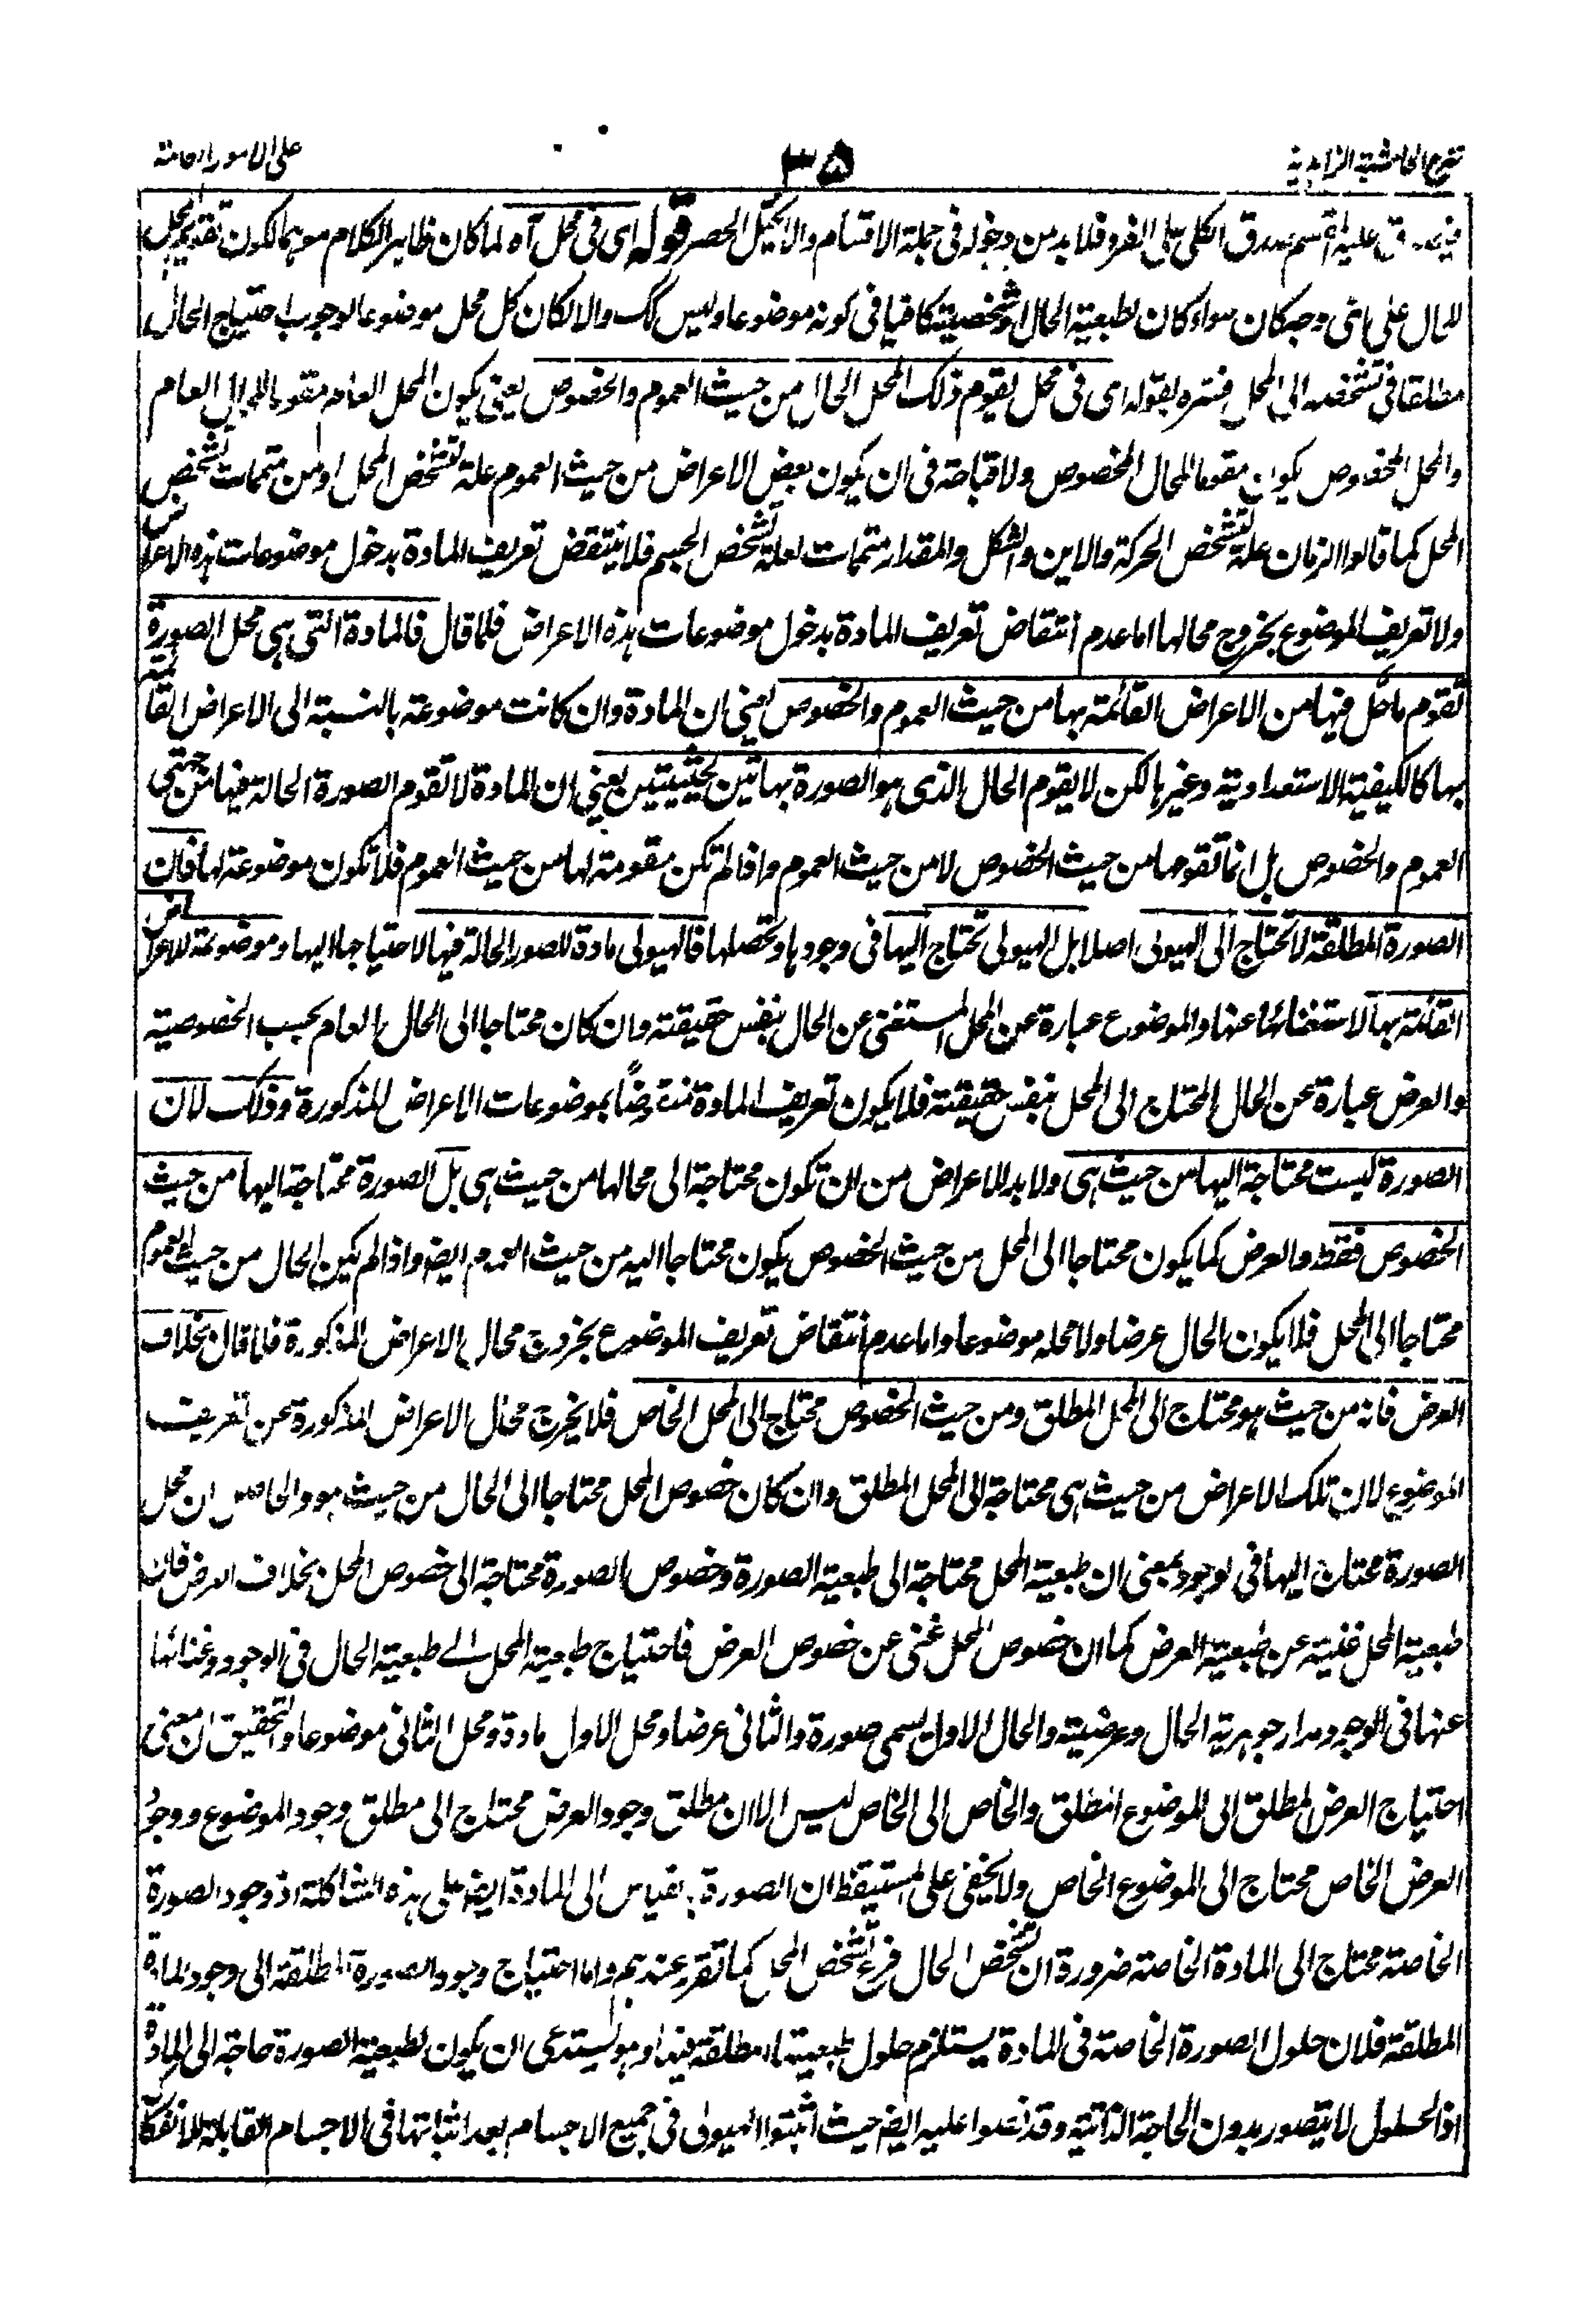 شرح الحاشية الزاهدية ٣٥ على الامور العامة
عليه المقسم صدق الكلى على الفرد فلا بد من دخوله فى جملة الاقسام والا يختل الحصر قوله اى فى محل آه لما كان ظاهر الكلام موهما لكون تقويم المحل
للحال على اى وجه كان سواء كان لطبعية الحال او شخصيته كافيا فى كونه موضوعا وليس كك والا لكان كل محل موضوعا لوجوب احتياج الحال
مطلقا فى تشخصه الى المحل فسره بقوله اى فى محل يقوم ذلك المحل الحال من حيث العموم والخصوص يعنى يكون المحل العام مقوما للحال العام
والمحل المخصوص يكون مقوما للحال المخصوص ولا قباحة فى ان يكون بعض الاعراض من حيث العموم علة لتشخص المحل او من متممات تشخص
المحل كما قالوا الزمان علة لتشخص الحركة والاين والشكل والمقدار متممات لعلة تشخص الجسم فلا ينتقض تعريف المادة بدخول موضوعات هذه الاعراض
ولا تعريف الموضوع بخروج محالها اما عدم انتقاض تعريف المادة بدخول موضوعات هذه الاعراض فلما قال فالمادة التى هى محل الصورة
تقوم ما حل فيها من الاعراض القائمة بها من حيث العموم والخصوص يعنى ان المادة وان كانت موضوعة بالنسبة الى الاعراض القائمة
بها كالكيفية الاستعدادية وغيرها لكن لا يقوم الحال الذى هو الصورة بهاتين الحيثيتين يعنى ان المادة لا تقوم الصورة الحالة فيها من جهتى
العموم والخصوص بل انما تقومها من حيث الخصوص لا من حيث العموم واذا لم تكن مقومة لها من حيث العموم فلا تكون موضوعة لها فان
الصورة المطلقة لا تحتاج الى الهيولى اصلا بل الهيولى تحتاج اليها فى وجودها وتحصلها فالهيولى مادة للصور الحالة فيها لاحتياجها اليها وموضوعة للاعراض
القائمة بها لاستغنائها عنها والموضوع عبارة عن المحل المستغنى عن الحال بنفس حقيقته وان كان محتاجا الى الحال العام بحسب الخصوصية
والعرض عبارة عن الحال المحتاج الى المحل بنفس حقيقته فلا يكون تعريف المادة منتقضا بموضوعات الاعراض المذكورة وذلك لان
الصورة ليست محتاجة اليها من حيث هى ولا بد للاعراض من ان تكون محتاجة الى محالها من حيث هى بل الصورة محتاجة اليها من حيث
الخصوص فقط والعرض كما يكون محتاجا الى المحل من حيث الخصوص يكون محتاجا اليه من حيث العموم ايضا واذا لم يكن الحال من حيث العموم
محتاجا الى المحل فلا يكون الحال عرضا ولا محله موضوعا واما عدم انتقاض تعريف الموضوع بخروج محال الاعراض المذكورة فلما قال بخلاف
العرض فانه من حيث هو محتاج الى المحل المطلق ومن حيث الخصوص محتاج الى المحل الخاص فلا يخرج محال الاعراض المذكورة عن تعريف
الموضوع لان تلك الاعراض من حيث هى محتاجة الى المحل المطلق وان كان خصوص المحل محتاجا الى الحال من حيث هو والحاصل ان محل
الصورة محتاج اليها فى الوجود بمعنى ان طبعية المحل محتاجة الى طبعية الصورة وخصوص الصورة محتاجة الى خصوص المحل بخلاف العرض فان
طبعية المحل غنية عن طبعية العرض كما ان خصوص المحل غنى عن خصوص العرض فاحتياج طبعية المحل الے طبعية الحال فى الوجود وغنائها
عنها فى الوجود مدار جوهرية الحال وعرضيته والحال الاول يسمى صورة والثانى عرضا ومحل الاول مادة ومحل الثانى موضوعا والتحقيق ان معنى
احتياج العرض المطلق الى الموضوع المطلق والخاص الى الخاص ليس الا ان مطلق وجود العرض محتاج الى مطلق وجود الموضوع ووجود
العرض الخاص محتاج الى الموضوع الخاص ولا يخفى على المستيقظ ان الصورة بقياس الى المادة ايضا على هذه الشاكلة اذ وجود الصورة
الخاصة محتاج الى المادة الخاصة ضرورة ان تشخص الحال فرع تشخص المحل كما تقرر عندهم واما احتياج وجود الصورة المطلقة الى وجود المادة
المطلقة فلان حلول الصورة الخاصة فى المادة يستلزم حلول طبعيتها المطلقة فيها وهو يستدعى ان يكون لطبعية الصورة حاجة الى المادة
اذ الحلول لا يتصور بدون الحاجة الذاتية وقد نصوا عليه ايضا حيث اثبتوا الهيولى فى جميع الاجسام بعد اثباتها فى الاجسام القابلة للانفكاك